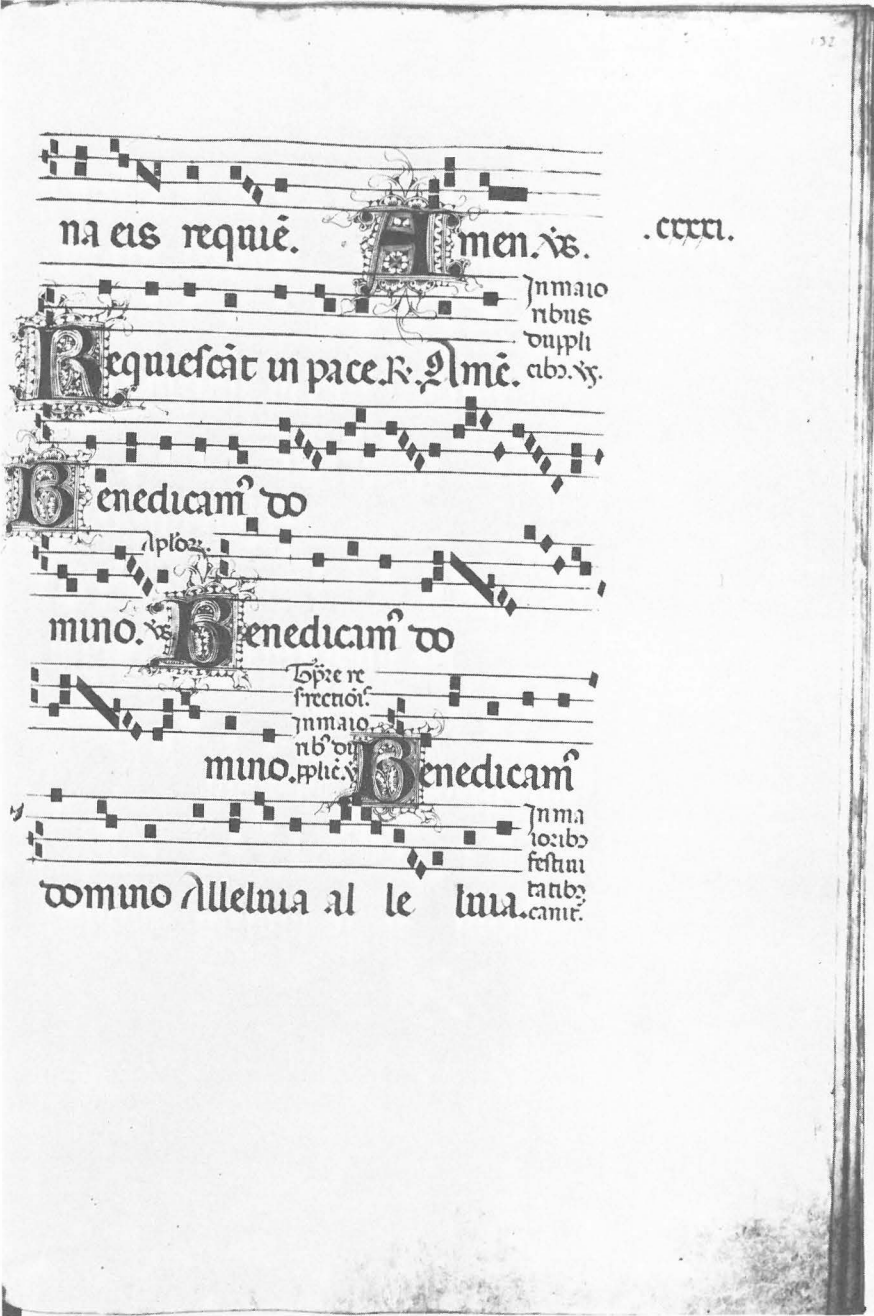 132
na eis requiē. Amen. v̄s.
.cxxxi.
In maio
ribus
dupli
cibꝫ. v̄s.
Requiescāt in pace. R. Amē.
Benedicamꝰ do
Aplōꝝ.
mino. v̄s Benedicamꝰ do
Tp̄re re
srectiōis.
in maio
ribꝰ du
plic̄. v̄
mino. Benedicamꝰ
In ma
ioribꝫ
festiui
tatibꝫ
canit̄.
domino Alleluia al le luia.